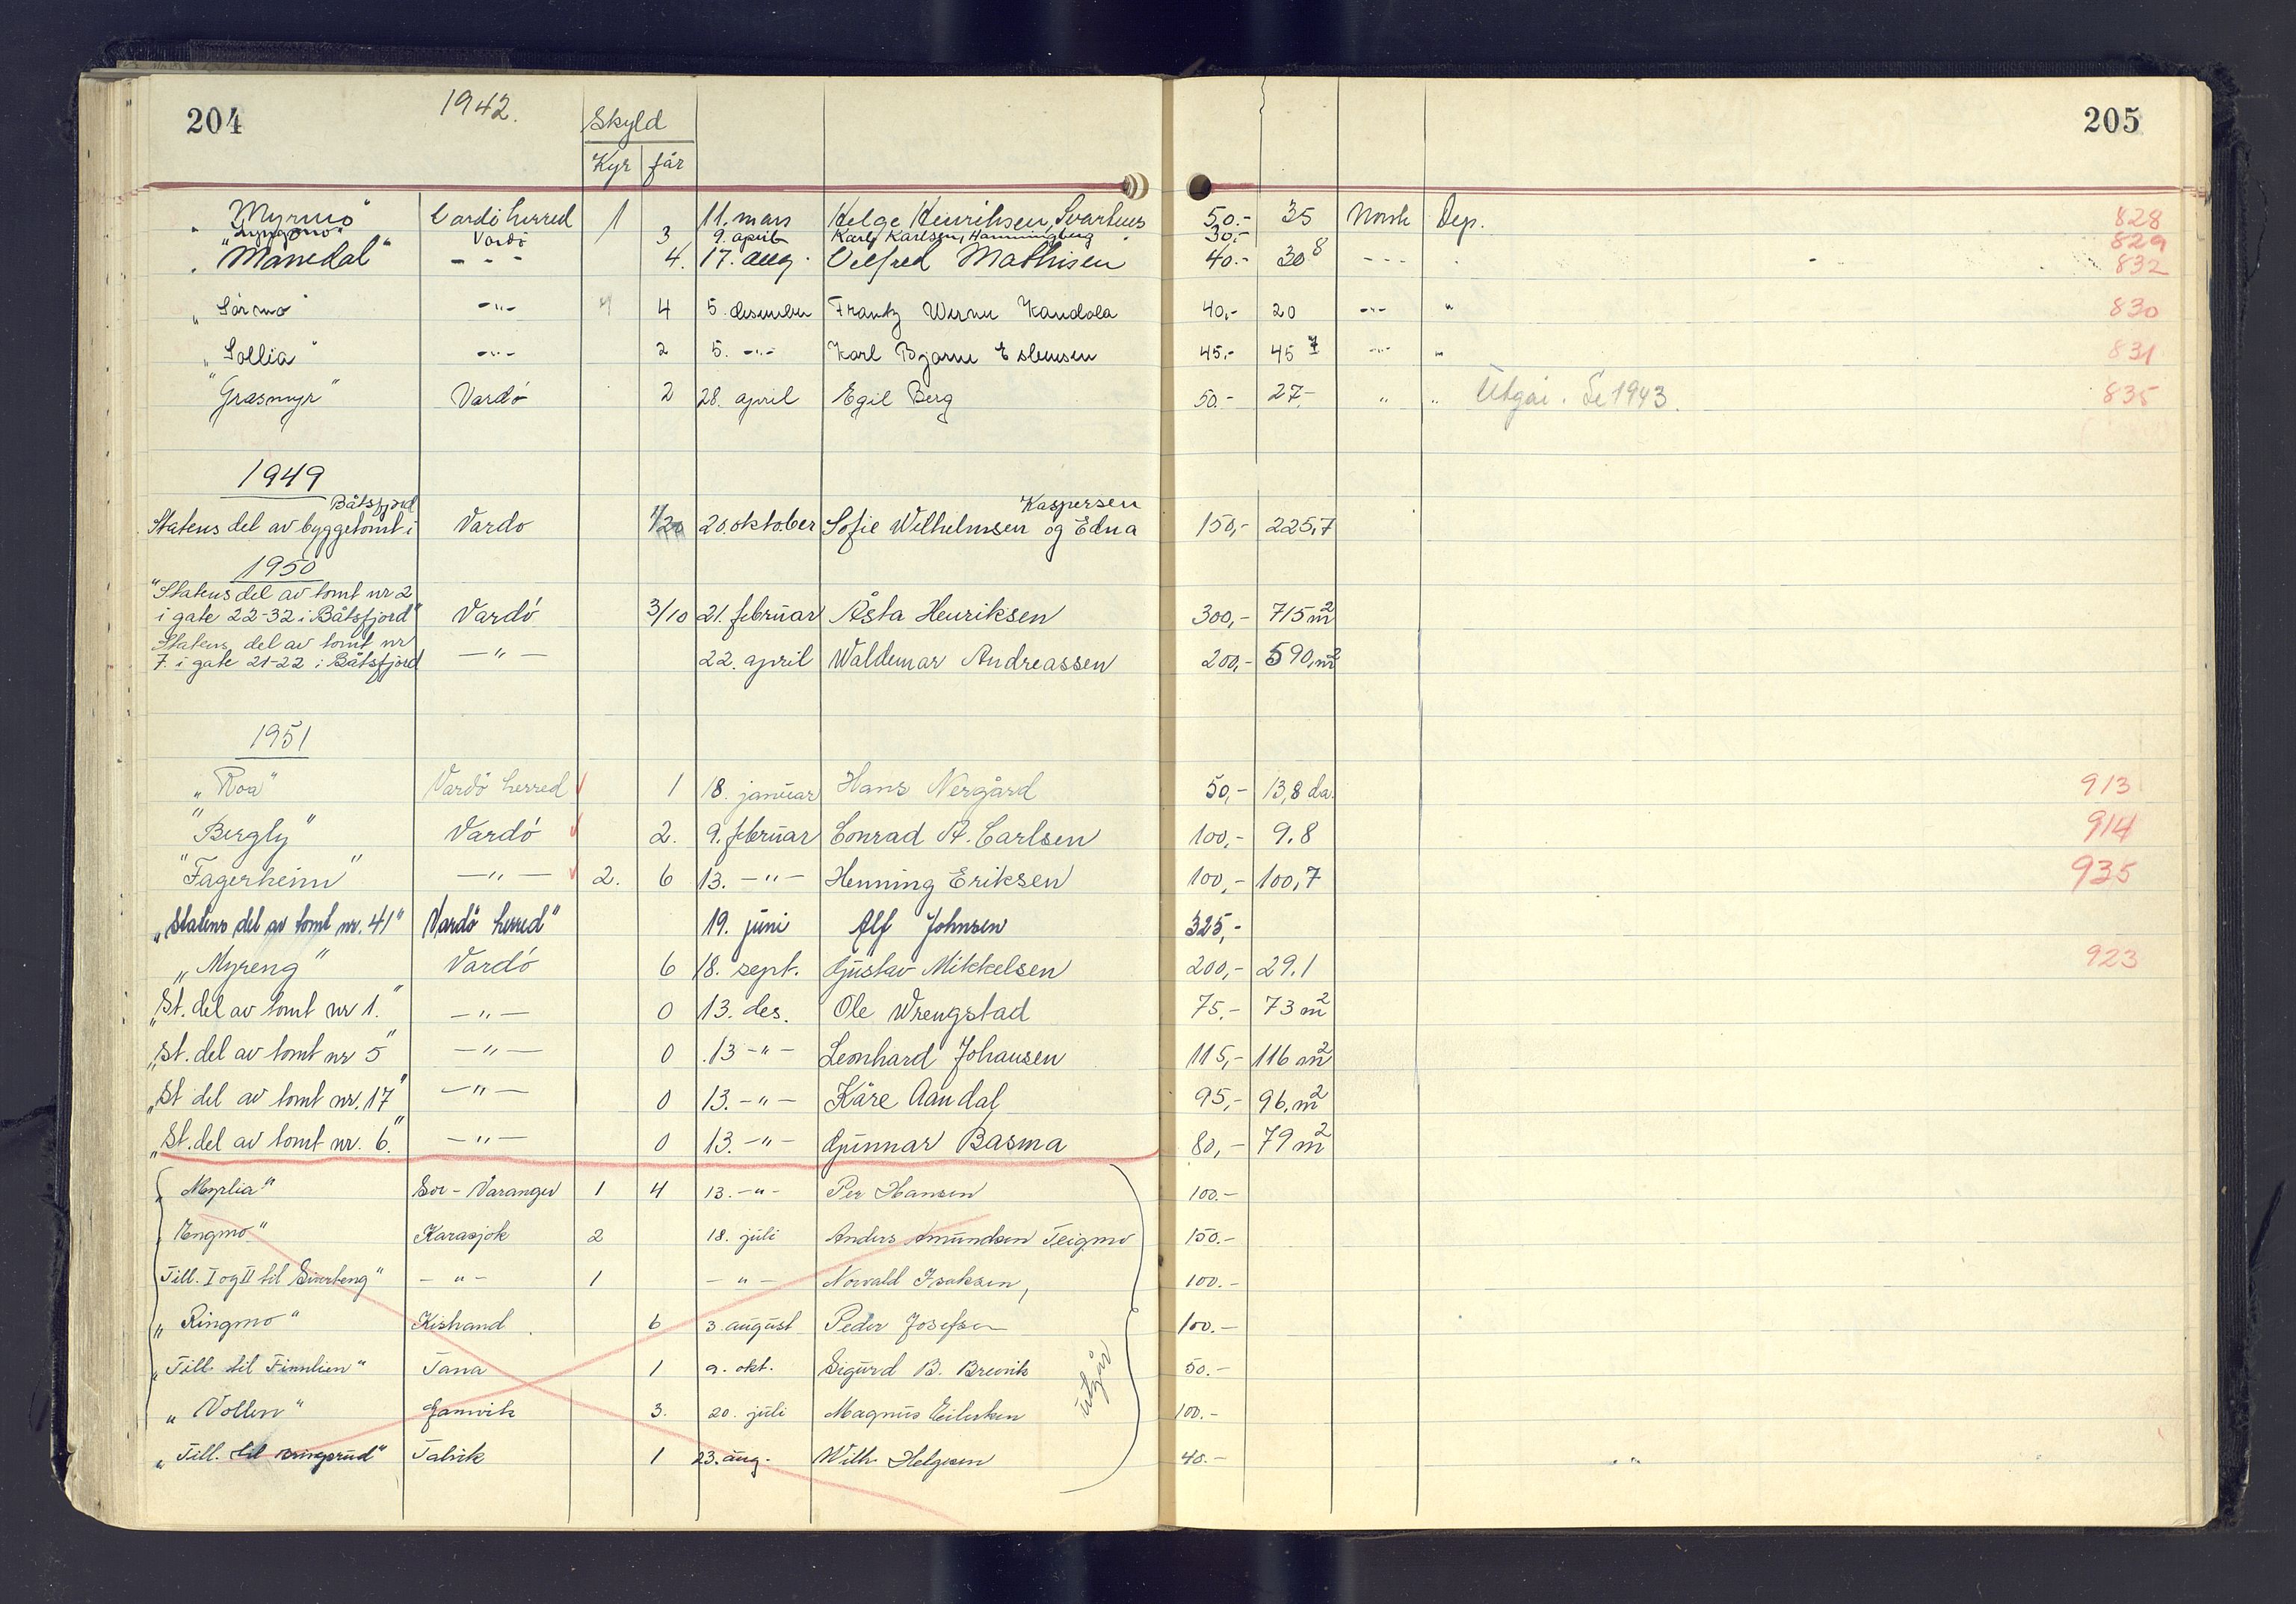 204 1942. 205
Skyld
Kyr får
"Myrmo" Vardö herred 1 11. mars Helge Henriksen, Svartnes 50.- 35 Norsk Dep. 828
Vardö 3 9. april Karl Karlsen, Hamningberg 30.- 829
"Manndal" - - - 4. 17. aug. Vilfred Mathisen 40.- 30 8 - - - 832
"Sörmo" -"- 4 4 5. desember Frantz Werner Kandola 40,- 20 -"- " 830
"Sollia" -"- 2 5. -"- Karl Bjarne Eslensen 45,- 45 7 -"- " 831
"Grasmyr" Vardö 2 28. april Egil Berg 50.- 27.- " " Utgår. Se 1943. 835
1949
Båtsfjord Kaspersen
Statens del av byggetomt i Vardö 1/20 20. oktober Sofie Wilhelmsen og Edna 150,- 225,7
1950
"Statens del av tomt nr 2
i gate 22-32 i Båtsfjord" Vardö 3/10 21. februar Åsta Henriksen 300,- 715 m2
Statens del av tomt nr
7. i gate 21-22 i Båtsfjord -"- 22. april Waldemar Andreassen 200,- 590, m2
1951
"Roa" Vardö herred 1 18. januar Hans Nergård 50,- 13,8 da. 913
"Bergly" Vardö 2. 9. februar Conrad A. Carlsen 100,- 9.8 914
"Fagerheim" -"- 2. 6 13. -"- Henning Eriksen 100,- 100,7 935
"Statens del av tomt nr. 41" Vardö herred" 19. juni Alf Johnsen 325,-
"Myreng" Vardö 6 18. sept. Gustav Mikkelsen 200,- 29.1 923
"St. del av tomt nr 1." -"- 0 13. des. Ole Wrengstad 75,- 73 m2
"St. del av tomt nr 5" -"- 0 13 -"- Leonhard Johansen 115,- 116 m2
"St del av tomt nr. 17" -"- 0 13. -"- Kåre Aandal 95,- 96, m2
"St. del av tomt nr. 6." -"- 0 13. -"- Gunnar Basma 80,- 79 m2
"Myrlia" Sör-Varanger 1 4 13. -"- Per Hansen 100.-
"Engmo" Karasjok 2 18. juli Anders Amundsen Teigmo 150.-
Till. I og II til Svarteng" -"- 1 -"- Norvald Isaksen, 100.-
"Ringmo" Kistrand 6 3. august Peder Josefsen 100.-
"Till. til Finnlien" Tana 1 9. okt. Sigurd B. Brevik 50.-
"Vollen" Gamvik 3. 20. juli Magnus Eilertsen 100.-
"Till. til" Talvik 1 23. aug. Wilh. Helgesen 40.-
utgår